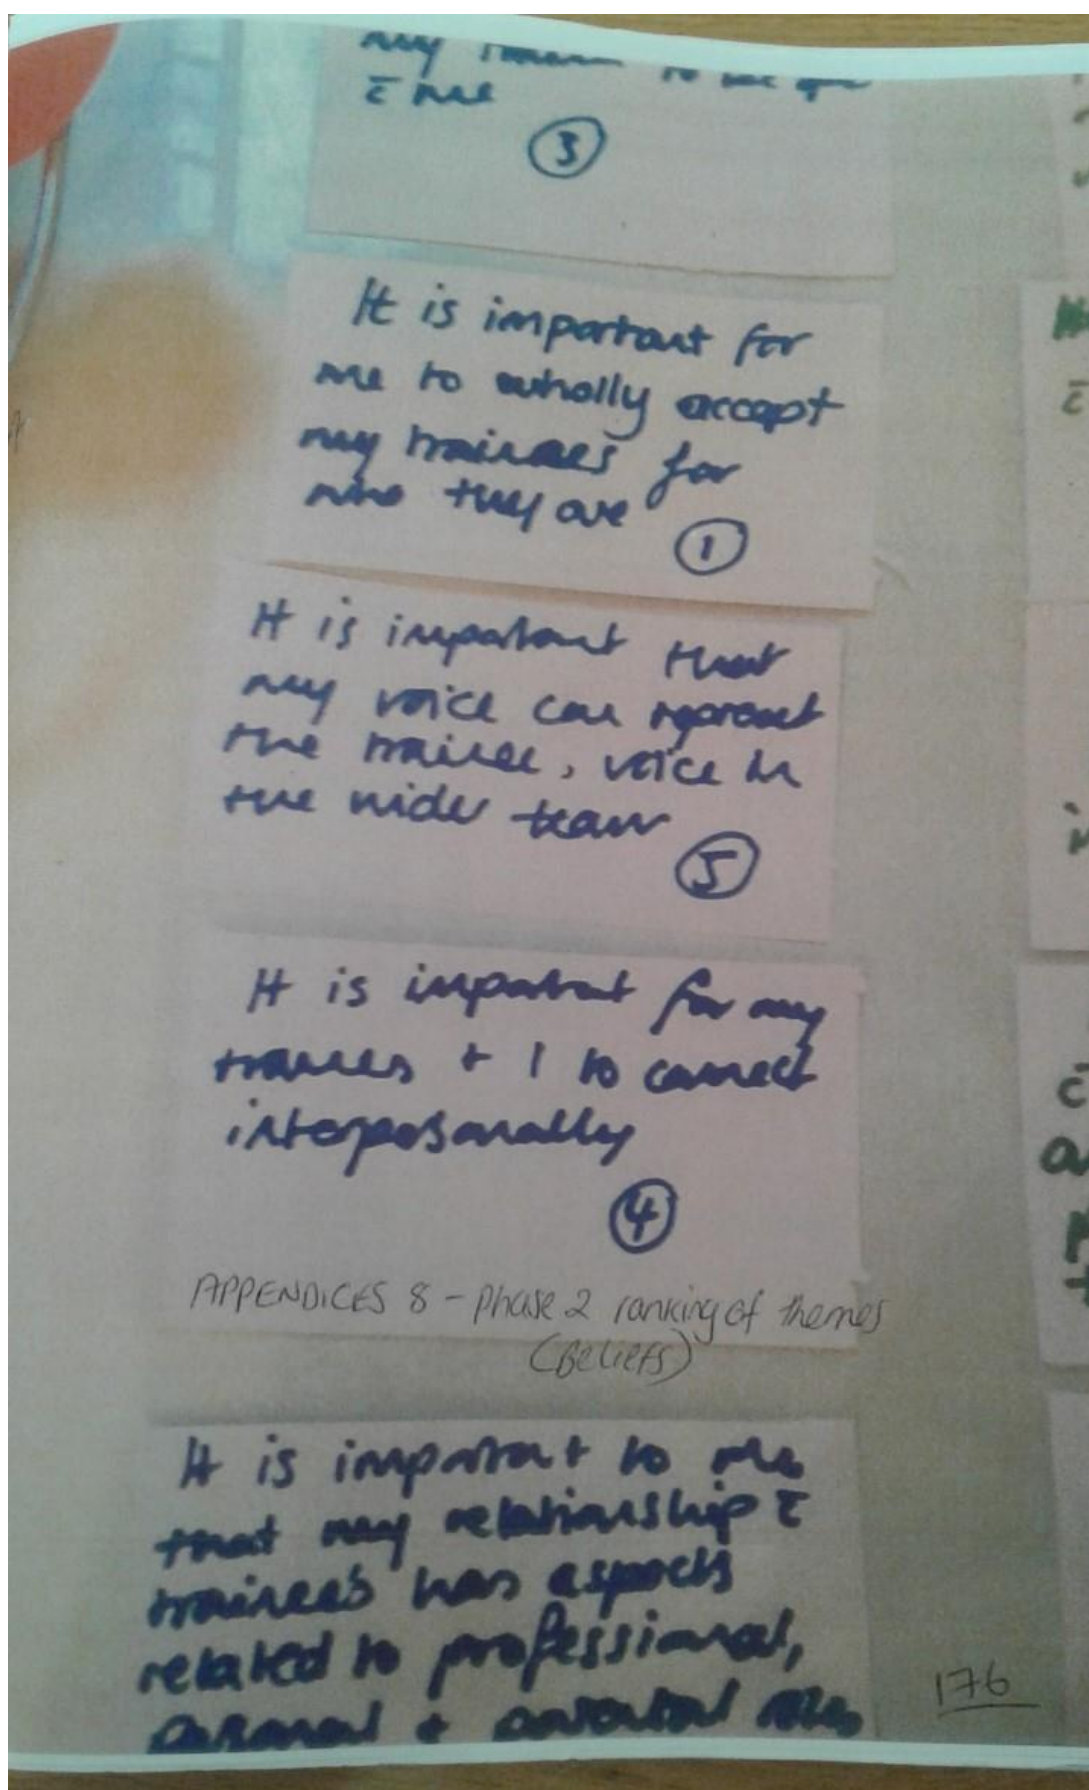 my to be open
c̄ me
3
It is important for
me to wholly accept
my trainees for
who they are
1
It is important that
my voice can represent
the trainee, voice in
the wider team
5
It is important for my
trainees + I to connect
interpersonally
4
APPENDICES 8 - phase 2 ranking of themes
(BELIEFS)
It is important to me
that my relationship c̄
trainees has aspects
related to professional,
personal + parental roles
176
c̄
c̄